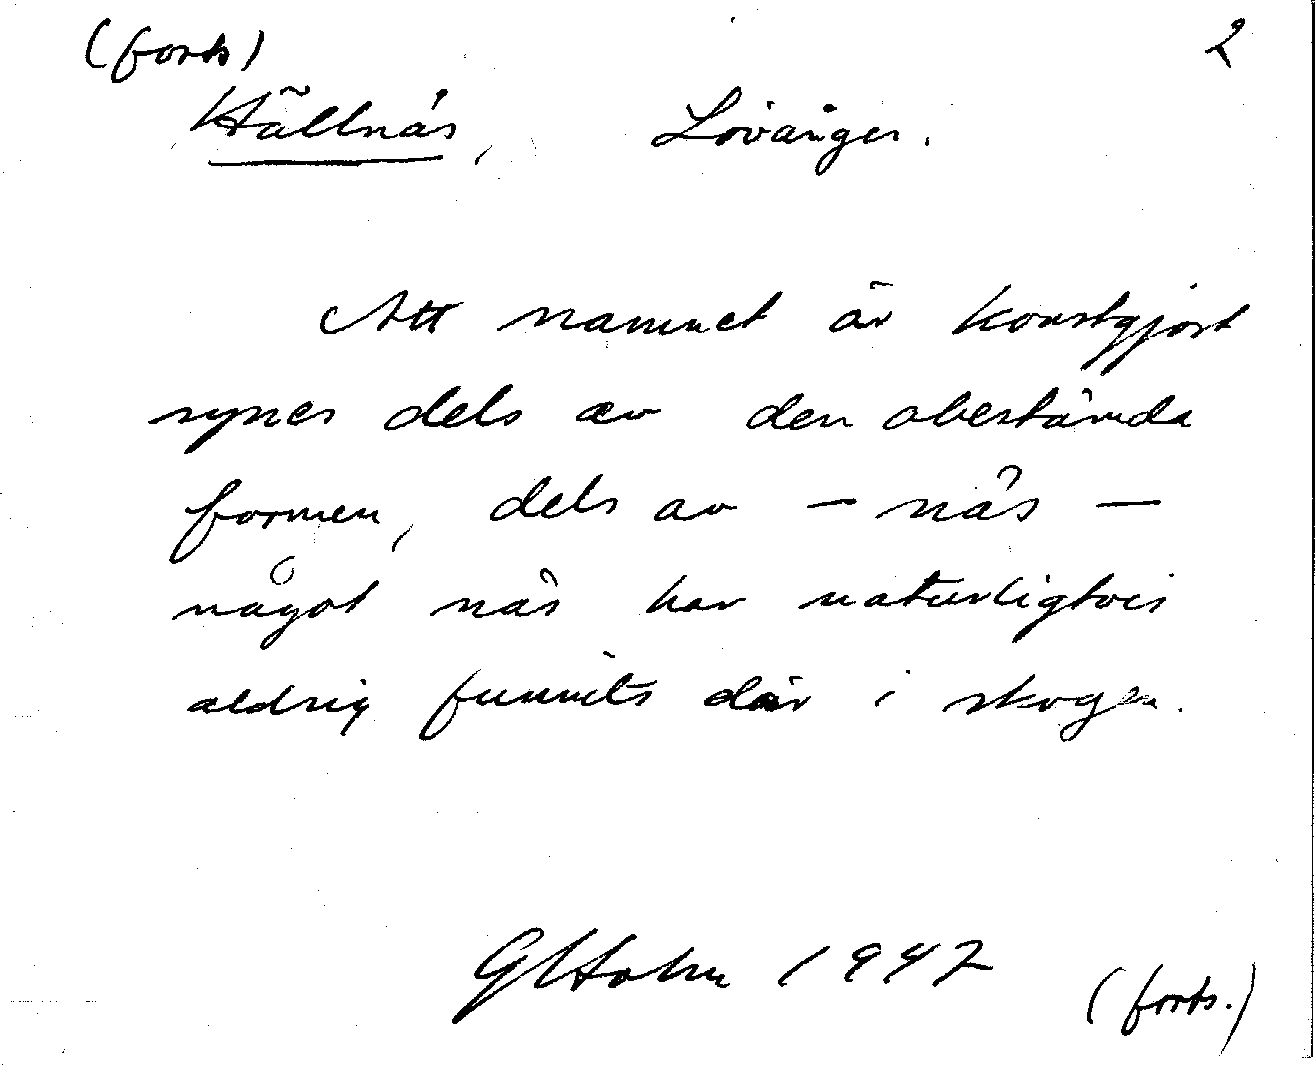 (forts) 2
Hällnäs, Lövånger.
Att namnet är konstgjort
synes dels av den obestämda
formen, dels av – näs –
något näs har naturligtvis
aldrig funnits där i skogen.
G Holm 1947 (forts.)